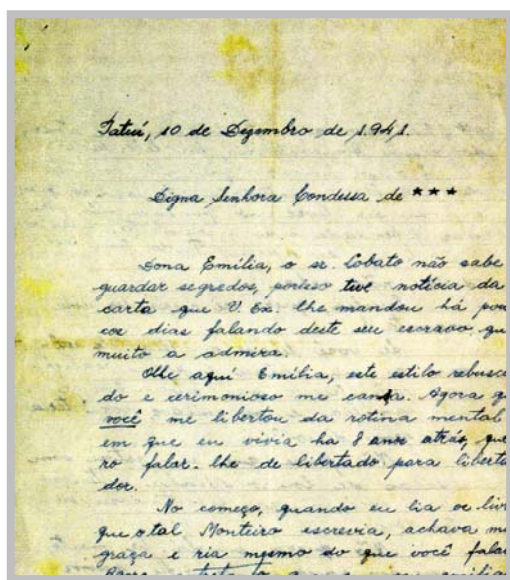 Tatuí, 10 de Dezembro de 1.941.
Digna Senhora Condessa de ***
Dona Emília, o sr. Lobato não sabe
guardar segredos, porisso tive notícia da
carta que V. Ex. lhe mandou há pou
cos dias falando deste seu escravo que
muito a admira.
Olhe aquí Emília, este estilo rebusca
do e cerimonioso me cansa. Agora q
você me libertou da rotina mental
em que eu vivia ha 8 anos atrás, que
ro falar-lhe de libertado para liberta
dor.
No começo, quando eu lia os liv
que o tal Monteiro escrevia, achava m
graça e ria mesmo do que você fala